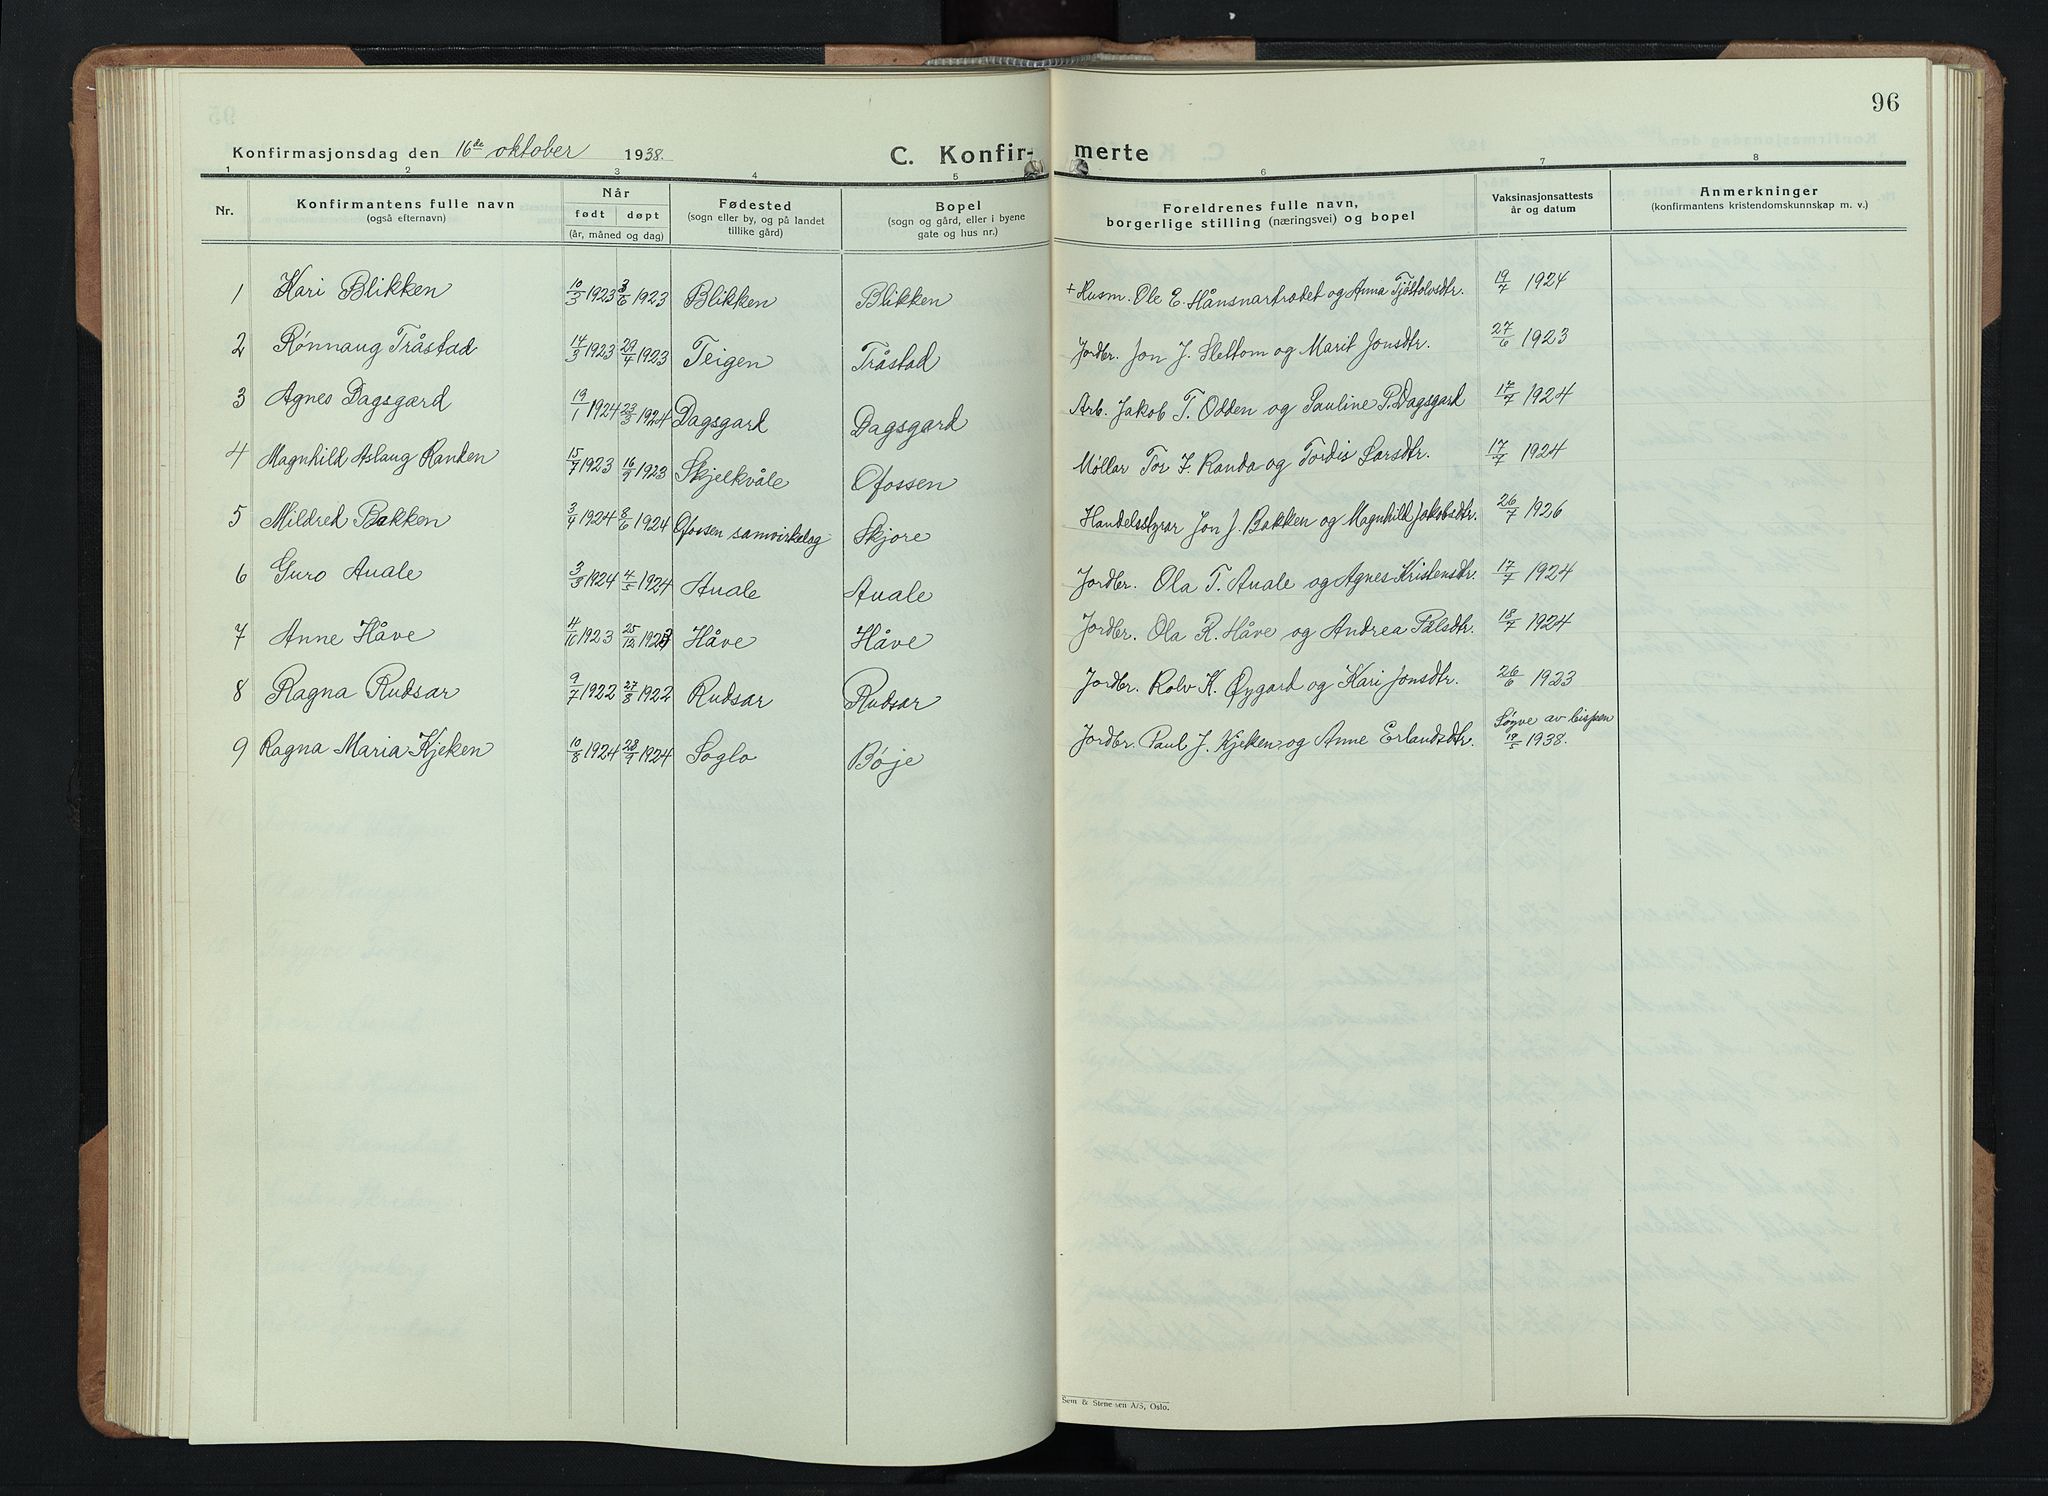 96
Konfirmasjonsdag den 16de oktober 1938. C. Konfir- merte
1 2 3 4 5 6 7 8
Nr. Konfirmantens fulle navn (også efternavn) Når født døpt (år, måned og dag) Fødested (sogn eller by, og på landet tillike gård) Bopel (sogn og gård, eller i byene gate og hus nr.) Foreldrenes fulle navn, borgerlige stilling (næringsvei) og bopel Vaksinasjonsattests år og datum Anmerkninger (konfirmantens kristendomskunnskap m. v.)
1 Kari Blikken 10/3 1923 3/6 1923 Blikken Blikken + Husm. Ole E. Hånsnartrødet og Anna Tjøstolvsdtr. 19/7 1924
2 Rønnaug Tråstad 14/3 1923 29/4 1923 Teigen Tråstad Jordbr. Jon J. Slettom og Marit Jonsdtr. 27/6 1923
3 Agnes Dagsgard 19/1 1924 23/3 1924 Dagsgard Dagsgard Arb. Jakob T. Odden og Pauline P. Dagsgard 17/7 1924
4 Magnhild Aslaug Randen 15/7 1923 16/9 1923 Skjelkvåle Ofossen Møllar Tor J. Randa og Tordis Larsdtr. 17/7 1924
5 Mildred Bakken 3/4 1924 8/6 1924 Ofossen samvirkelag Skjore Handelsstyrar Jon J. Bakken og Magnhild Jakobsdtr. 26/7 1926
6 Guro Auale 3/3 1924 4/5 1924 Auale Auale Jordbr. Ola T. Auale og Agnes Kristensdtr. 17/7 1924
7 Anne Håve 4/10 1923 25/12 1923 Håve Håve Jordbr. Ola R. Håve og Andrea Pålsdtr. 18/7 1924
8 Ragna Rudsar 9/7 1922 27/8 1922 Rudsar Rudsar Jordbr. Rolv K. Øygard og Kari Jonsdtr. 26/6 1923
9 Ragna Maria Kjeken 10/8 1924 28/9 1924 Soglo Bøje Jordbr. Paul J. Kjeken og Anne Erlandsdtr. Løyve av bispen 19/5 1938.
Sem & Stenersen A/S, Oslo.